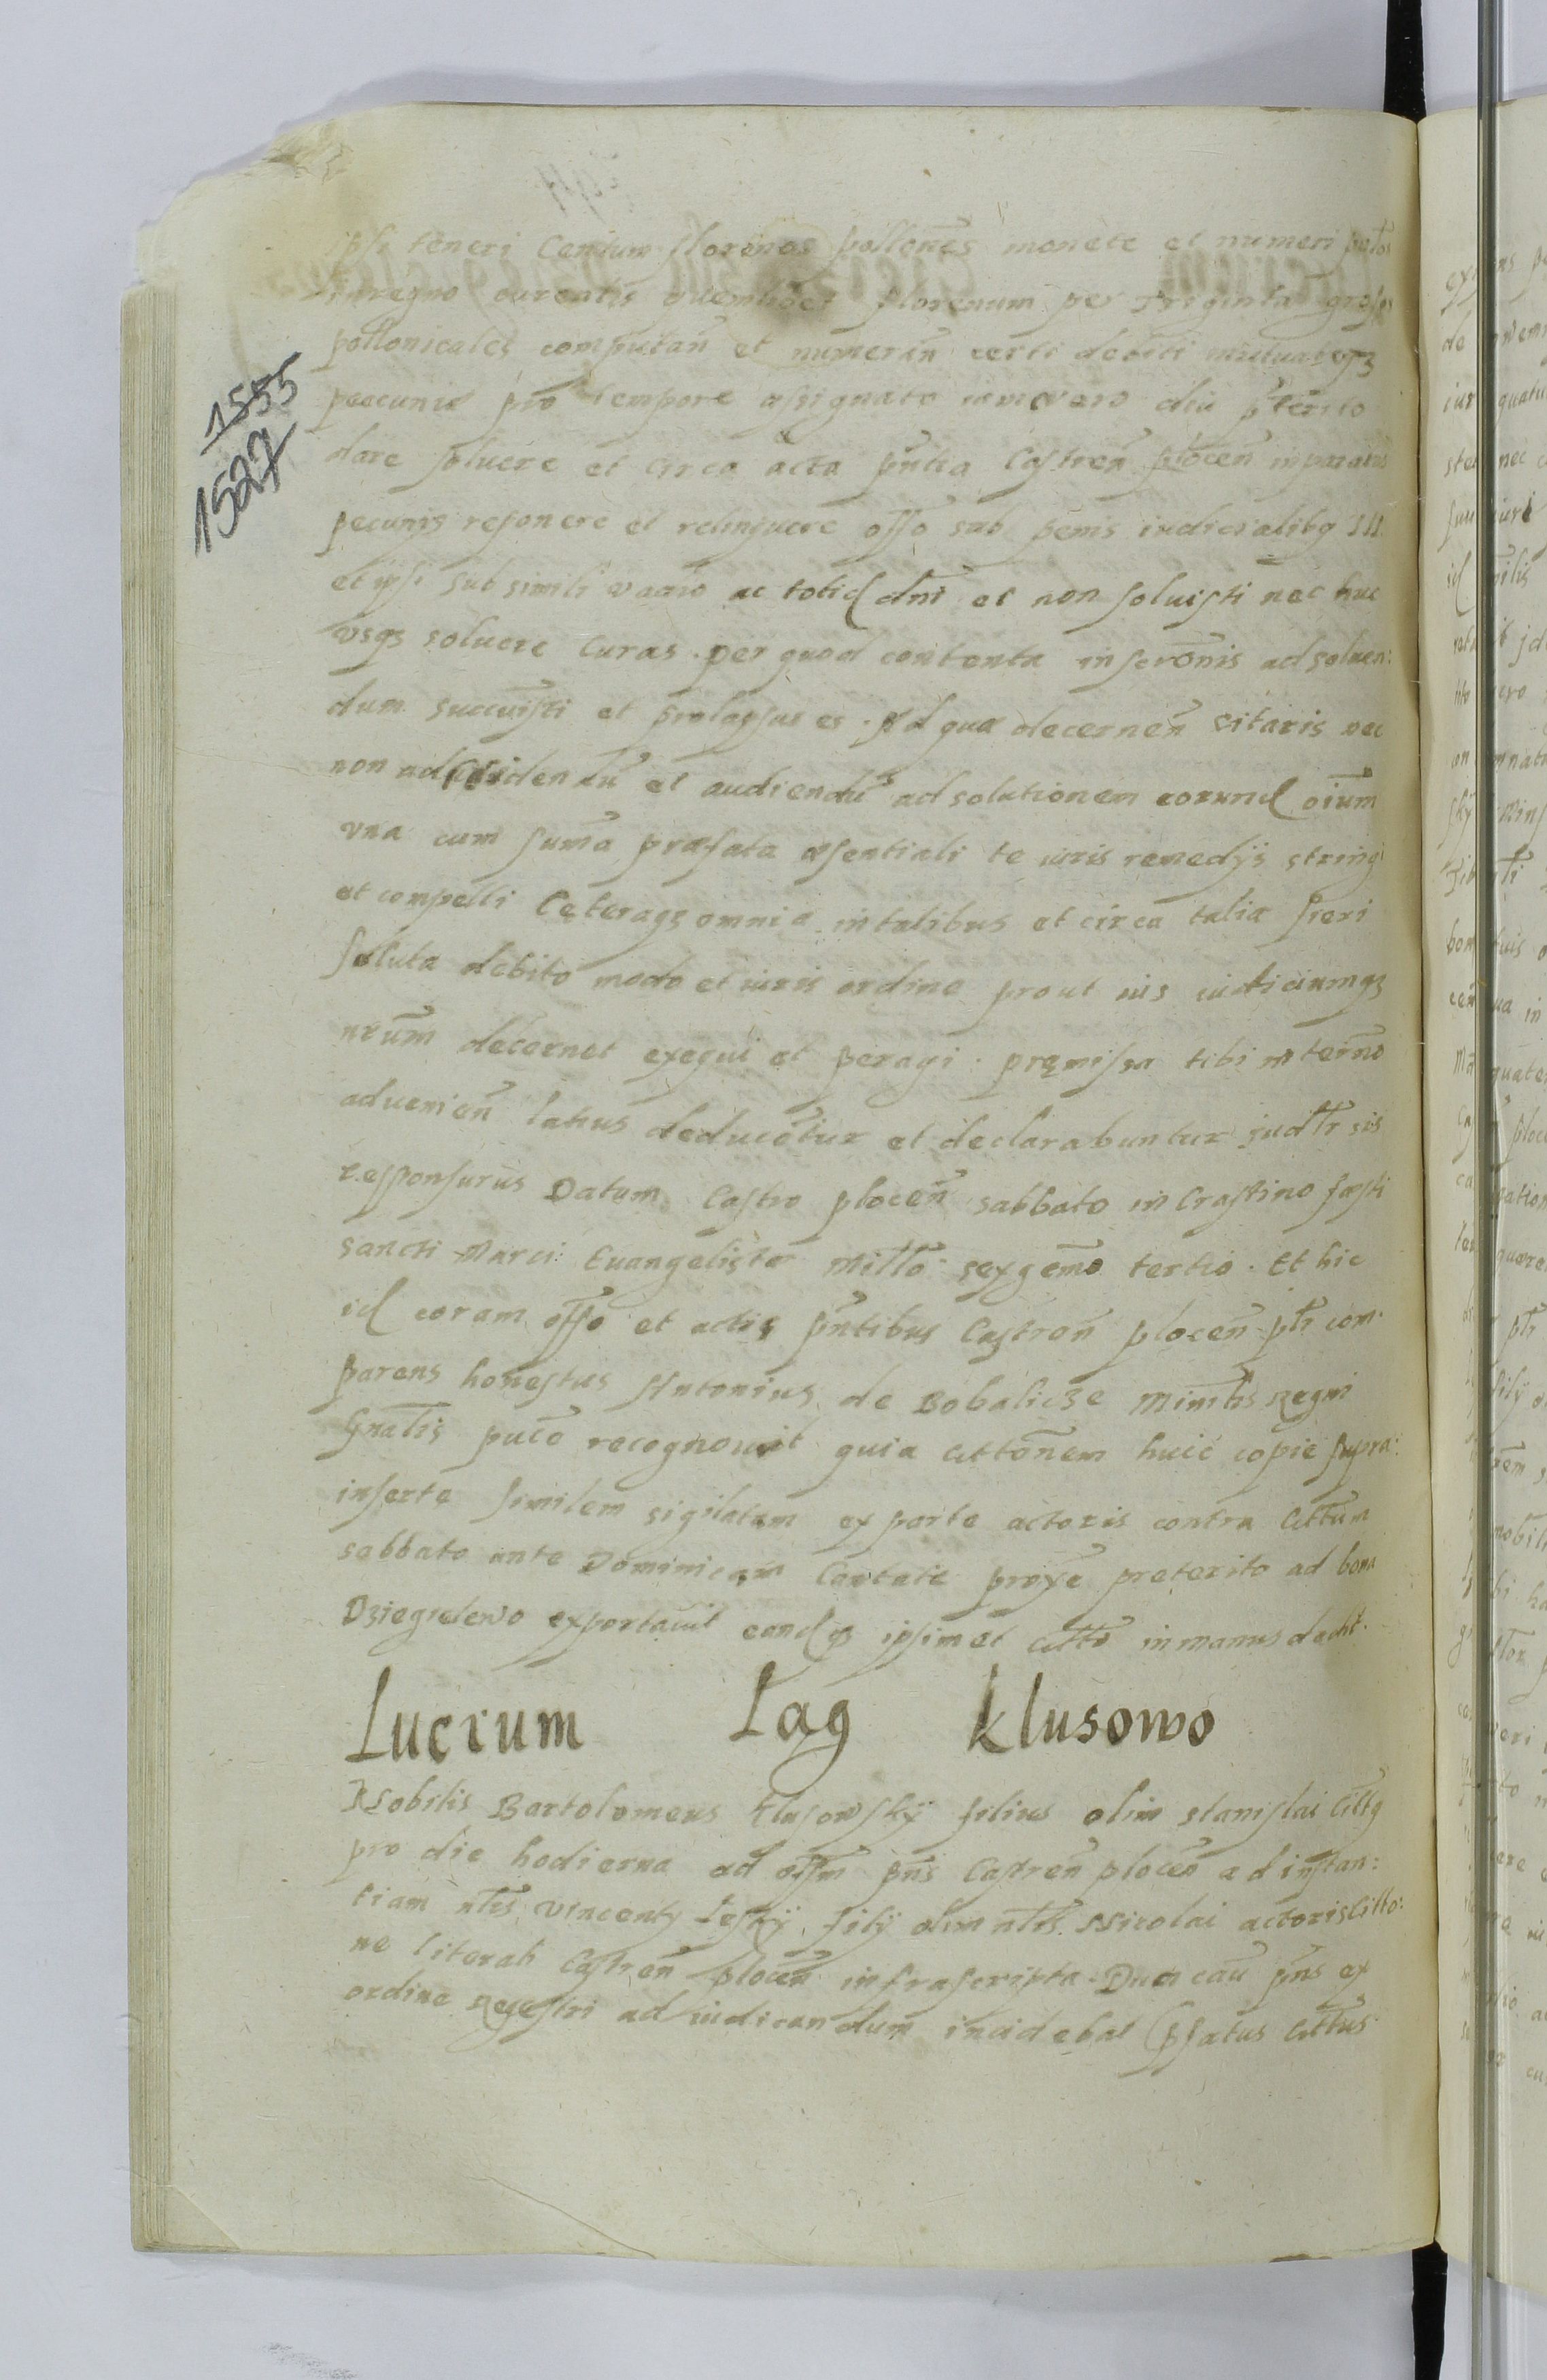 ipsi teneri Centum florenos pollones monete et numeri
in regno curentis quemlibet florenum per Triginta grosos
pollonicales computan et numeran certi debiti mutuateqz
peecunie pro tempore assignato iamvero diu pterito
dare soluere et circa acta pntia Castren plocen inparatis
pecunijs reponere et relinquere offo sub penis iudicialibq III
et ipsi sub simili vadio ac totid dni et non soluisti nec huc
vsqz soluere curas. per quod contenta inscronis ad soluen:
dum succuisti et prolapsus es. Ad qua decernen citaris nec
non ad videndu et audiendu ad solutionem eorund oium
vna cum suma præfata esentiali te iuris remedijs stringi
et compelli Ceteraqz omnia in talibus et circa talia fieri
soluta debito modo et iuris ordine prout ius iudiciumqz
nrum decernet exequi et peragi. premissa tibi in termo
aduenien latius deducetur et declarabuntur judtr sis
responsurus Datum Castro plocen sabbato in Crastino festi
sancti Marci: Euangeliste Millo sexgemo tertio. Et hic
id coram offo et actis pntibus Castren plocen ptr com:
parens honestus Antonius de Bobalicze Minitis Regni
Gnalis puto recognouit quia cittonem huic copie supra:
inserte similem sigilatam ex parte actoris contra Cittum
sabbato ante Dominicam Cantate proxe preterito ad bona
Dziegielewo exportauit eandqz ipsimet citto in manus dedit.
1555
1527
Lucrum Łąg Klusowo
Nobilis Bartolomeus Klusowskÿ filius olim stanislai Cittq
pro die hodierna ad offm pns Castren plocen ad instan:
tiam nlis Vincenty Leskÿ filÿ olim nlis Nicolai actoris Citto:
ne literali Castren plocen infrascripta. Dum cau pns ex
ordine Regestri ad iudicandum incidebat pfatus Cittus